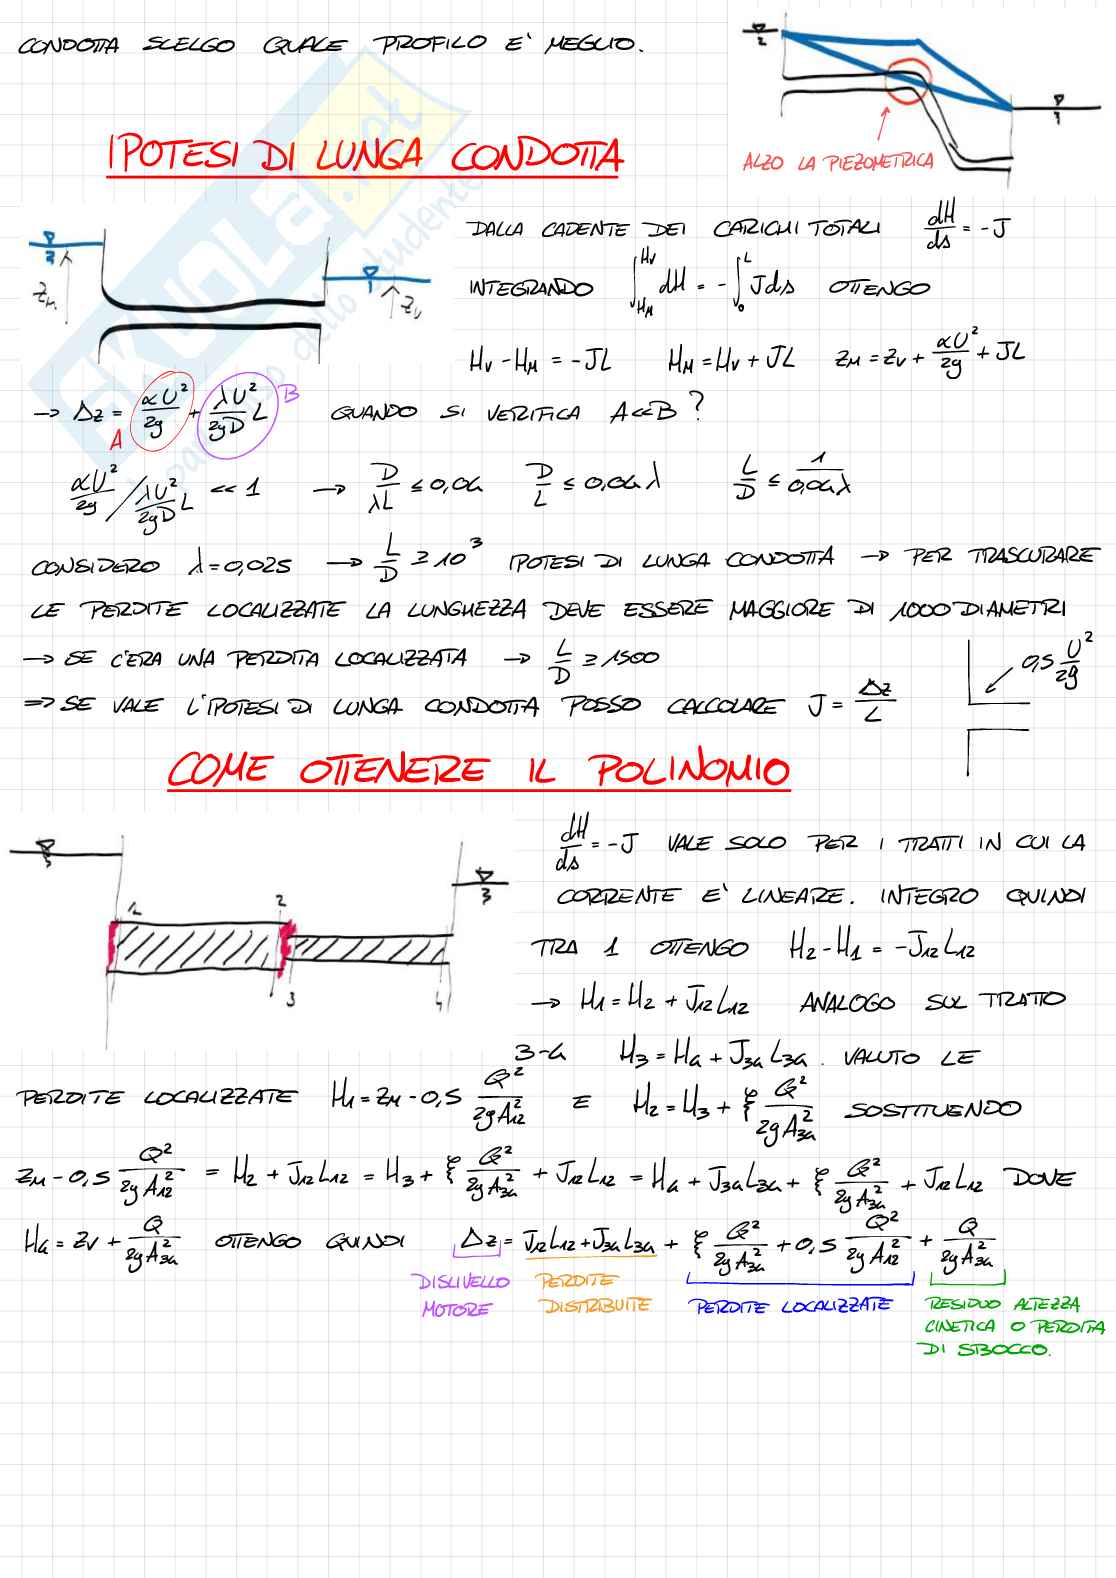 CONDOTTA SCELGO QUALE PROFILO E' MEGLIO.
2
1
ALZO LA PIEZOMETRICA
IPOTESI DI LUNGA CONDOTTA
Z_M
Z_V
DALLA CADENTE DEI CARICHI TOTALI dH/ds = -J
INTEGRANDO ∫_{H_M}^{H_V} dH = - ∫_0^L J ds OTTENGO
H_V - H_M = -JL H_M = H_V + JL Z_M = Z_V + αU²/2g + JL
→ Δz = αU²/2g + λU²/2gD L QUANDO SI VERIFICA A≪B?
A
B
αU²/2g / λU²/2gD L << 1 → D/λL ≤ 0,04 D/L ≤ 0,04 λ L/D ≤ 1/0,04λ
CONSIDERO λ = 0,025 → L/D ≥ 10³ IPOTESI DI LUNGA CONDOTTA → PER TRASCURARE
LE PERDITE LOCALIZZATE LA LUNGHEZZA DEVE ESSERE MAGGIORE DI 1000 DIAMETRI
→ SE C'ERA UNA PERDITA LOCALIZZATA → L/D ≥ 1500
0,5 U²/2g
⇒ SE VALE L'IPOTESI DI LUNGA CONDOTTA POSSO CALCOLARE J = Δz/L
COME OTTENERE IL POLINOMIO
1 2 3 4
3
dH/ds = -J VALE SOLO PER I TRATTI IN CUI LA
CORRENTE E' LINEARE. INTEGRO QUINDI
TRA 1 OTTENGO H_2 - H_1 = -J_12 L_12
→ H_1 = H_2 + J_12 L_12 ANALOGO SUL TRATTO
3-4 H_3 = H_4 + J_34 L_34. VALUTO LE
PERDITE LOCALIZZATE H_1 = Z_M - 0,5 Q²/2gA_12² E H_2 = H_3 + ξ Q²/2gA_34² SOSTITUENDO
Z_M - 0,5 Q²/2gA_12² = H_2 + J_12 L_12 = H_3 + ξ Q²/2gA_34² + J_12 L_12 = H_4 + J_34 L_34 + ξ Q²/2gA_34² + J_12 L_12 DOVE
H_4 = Z_V + Q/2gA_34² OTTENGO QUINDI Δz = J_12 L_12 + J_34 L_34 + ξ Q²/2gA_34² + 0,5 Q²/2gA_12² + Q/2gA_34²
DISLIVELLO MOTORE
PERDITE DISTRIBUITE
PERDITE LOCALIZZATE
RESIDUO ALTEZZA
CINETICA O PERDITA
DI SBOCCO.